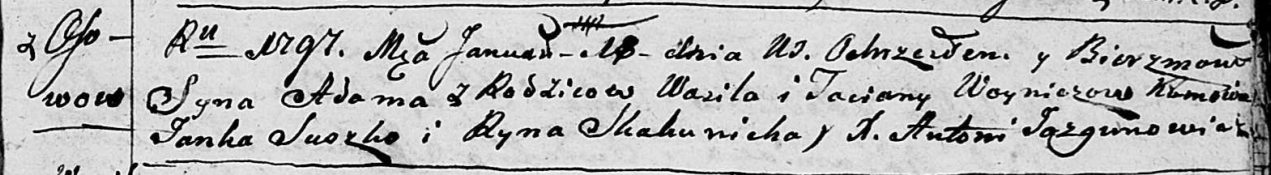 z Oso-
wow
Ru 1797. Mca Januar 18 dnia Ur. Ochrzcilem y Bierzmow
Syna Adama z Rodzicow Wasila i Taciany Woyniczow Kumowie
Janka Suszko i Ryna Skakunicha X. Antoni Jazgunowicz